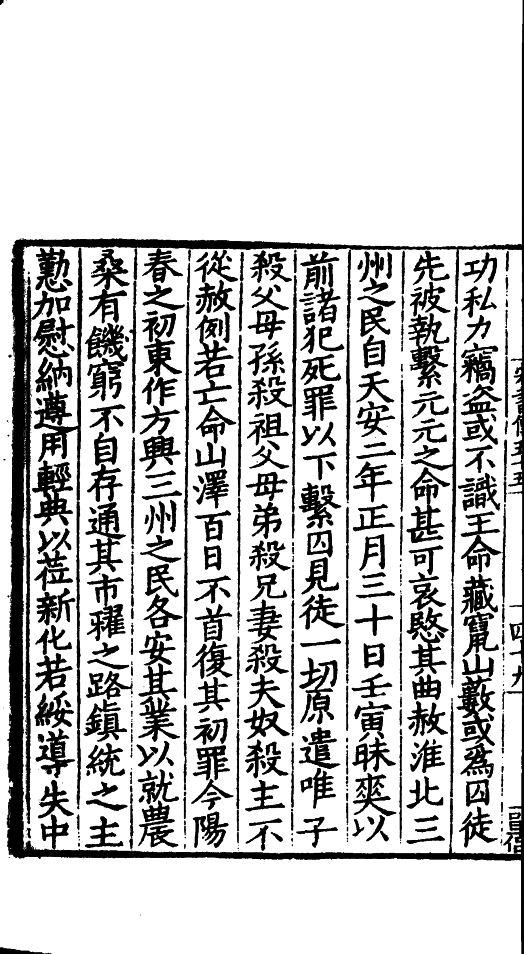 功私力竊盗或不識王命藏竄山藪或爲囚徒
先被執繫元元之命甚可哀愍其曲赦淮北三
州之民自天安二年正月三十日壬寅昧爽以
前諸犯死罪以下繫囚見徒一切原遣唯子
殺父母孫殺祖父母弟殺兄妻殺夫奴殺主不
從赦例若亡命山澤百日不首復其初罪今陽
春之初東作方興三州之民各安其業以就農
桑有饑窮不自存通其市糴之路鎮統之主
懃加慰納遵用輕典以莅新化若綏導失中